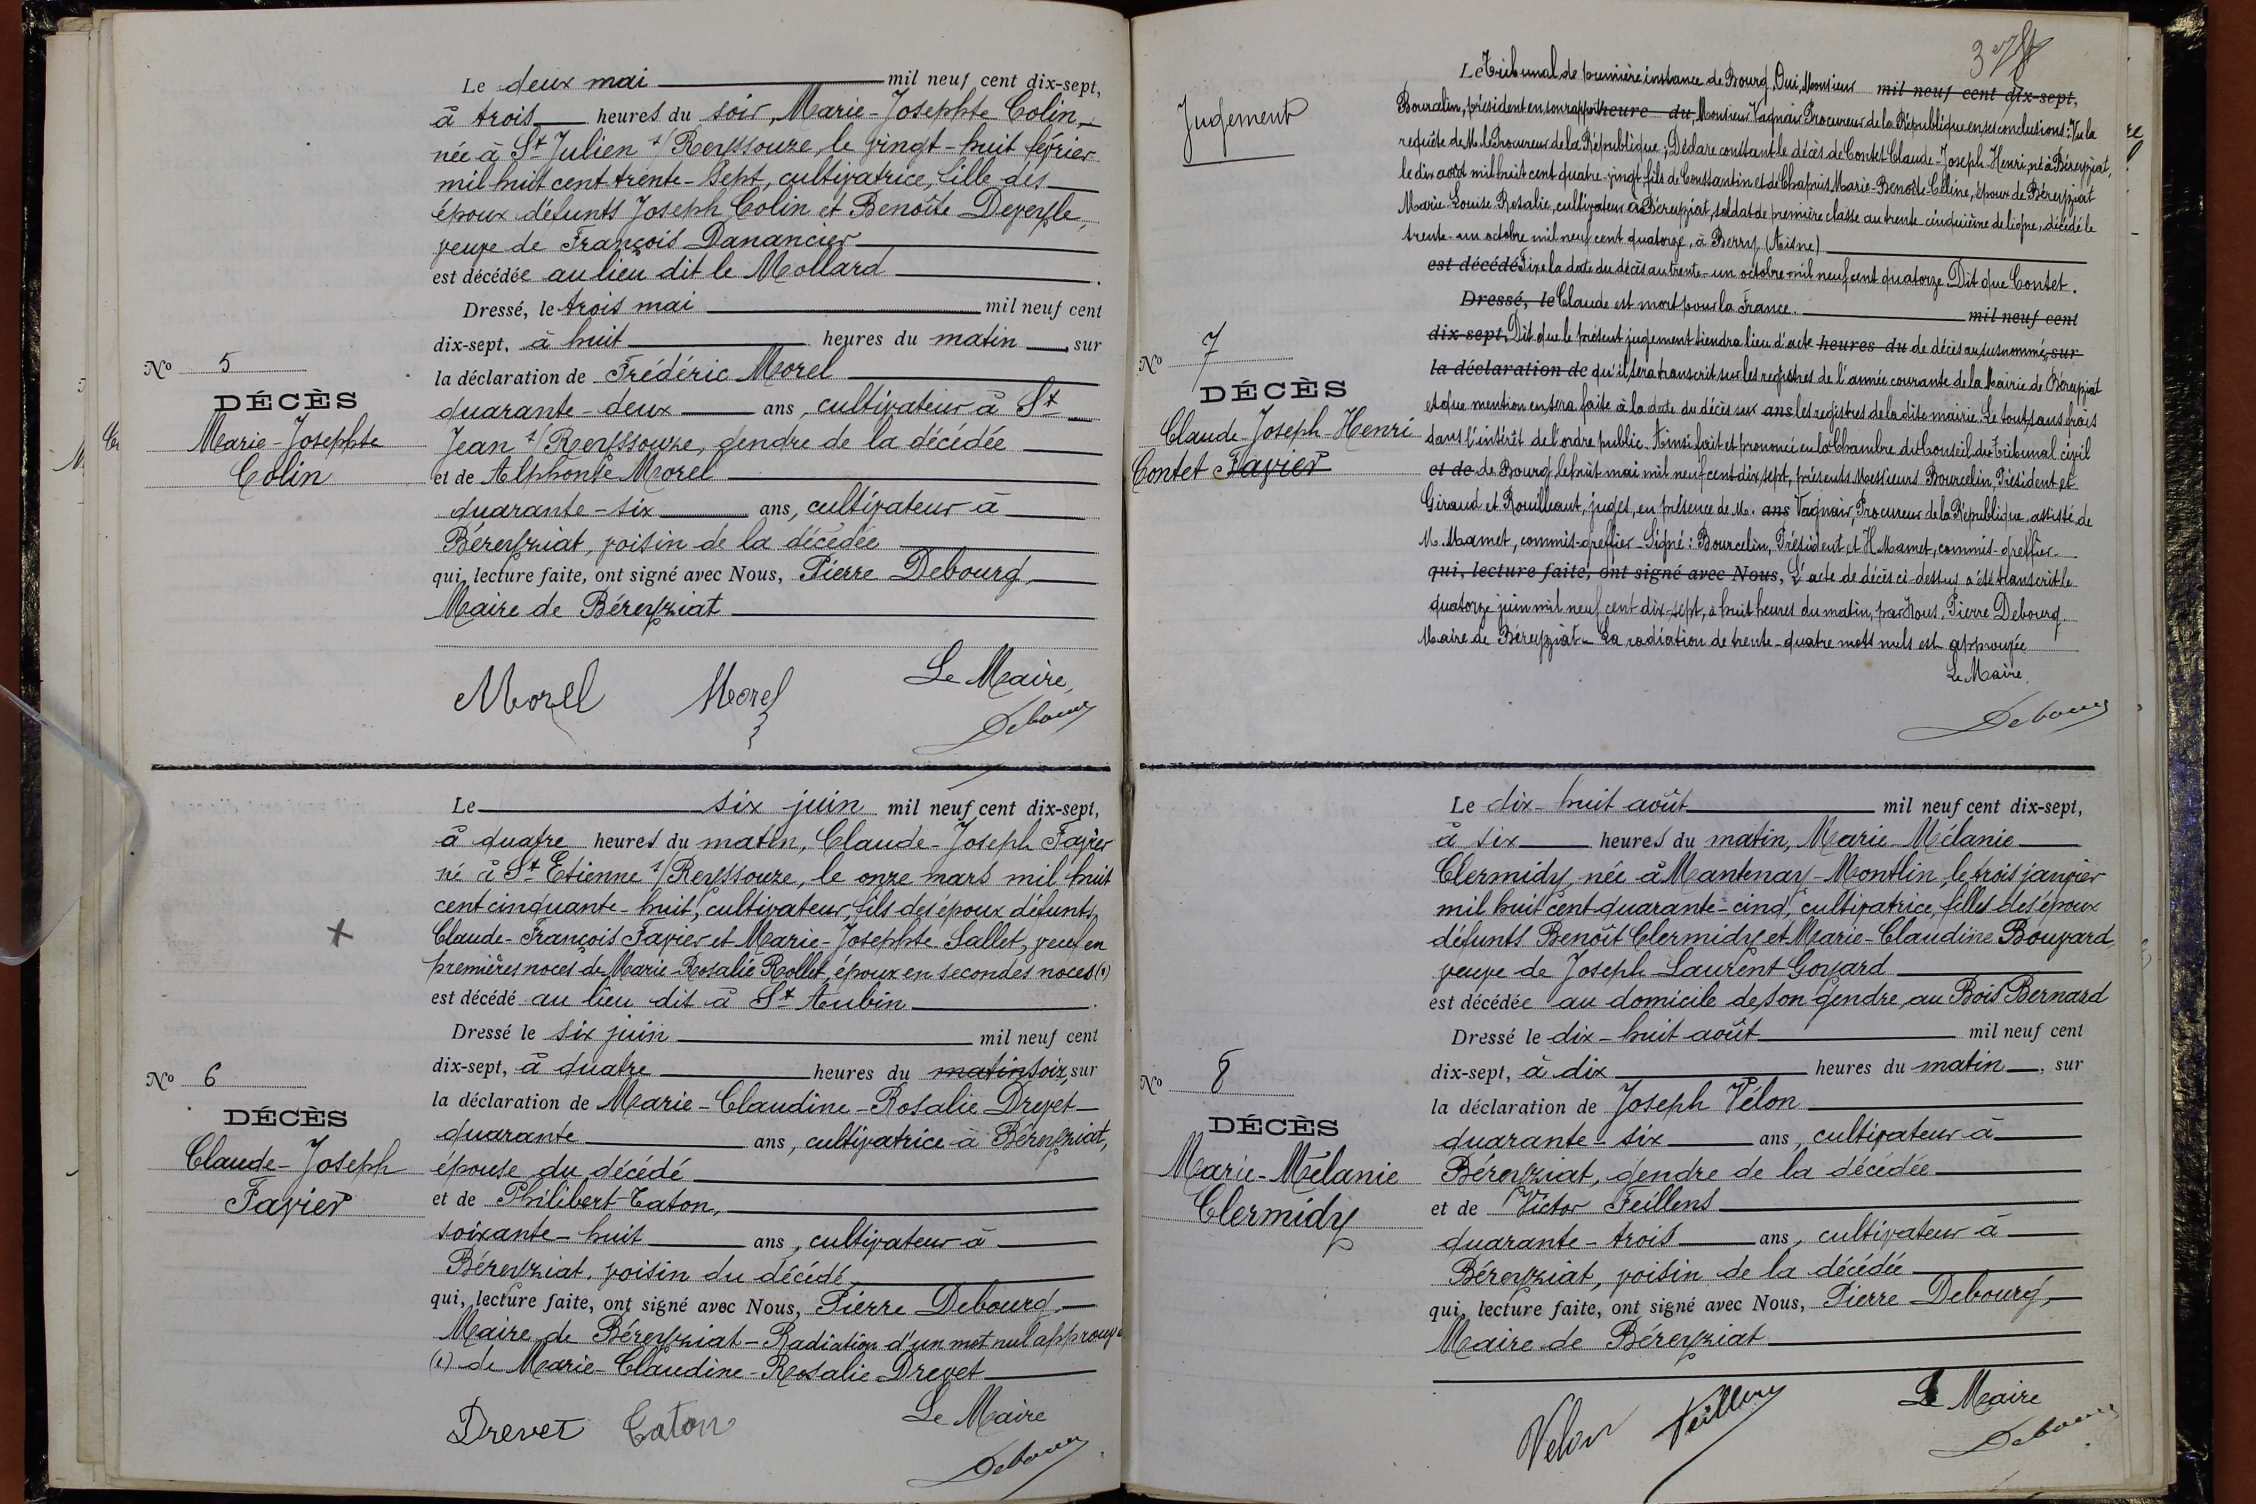 Le deux mai mil neuf cent dix-sept,
à trois heures du soir, Marie-Josephte Colin,
née à St Julien s/ Reyssouze, le vingt-huit février
mil huit cent trente-sept, cultivatrice, fille des
époux défunts Joseph Colin et Benoîte Deveyle,
veuve de François Danancier
est décédée au lieu dit le Mollard
Dressé, le trois mai mil neuf cent
dix-sept, à huit heures du matin, sur
No 5
la déclaration de Frédéric Morel
DÉCÈS
quarante-deux ans, cultivateur à St
Marie-Josephte
Jean s/ Reyssouze, gendre de la décédée
Colin
et de Alphonse Morel
quarante-six ans, cultivateur à
Béreyziat, voisin de la décédée
qui, lecture faite, ont signé avec Nous, Pierre Debourg,
Maire de Béreyziat
Le Maire,
Morel Morel Debourg
Le six juin mil neuf cent dix-sept,
à quatre heures du matin, Claude-Joseph Favier
né à St Etienne s/ Reyssouze, le onze mars mil huit
cent cinquante-huit, cultivateur, fils des époux défunts
Claude-François Favier et Marie-Josephte Sallet, veuf en
premières noces de Marie-Rosalie Rollet, époux en secondes noces (1)
est décédé au lieu dit à St Aubin
Dressé le six juin mil neuf cent
dix-sept, à quatre heures du matin soir, sur
No 6
la déclaration de Marie-Claudine-Rosalie Drevet
DÉCÈS
quarante ans, cultivatrice à Béreyziat,
Claude-Joseph
épouse du décédé
Favier
et de Philibert Caton,
soixante-huit ans, cultivateur à
Béreyziat, voisin du décédé
qui, lecture faite, ont signé avec Nous, Pierre Debourg,
Maire de Béreyziat - Radiation d'un mot nul approuvé
(1) de Marie-Claudine-Rosalie Drevet
Le Maire
Drevet Caton Debourg
Jugement
Le Tribunal de première instance de Bourg, Oui, Monsieur mil neuf cent dix-sept,
Bourcelin, président en son rapport heure du, Monsieur Vagnair Procureur de la République en ses conclusions: Vu la
requête de M. le Procureur de la République; Déclare constant le décès de Contet Claude-Joseph-Henri, né à Béreyziat,
le dix août mil huit cent quatre-vingt, fils de Constantin et de Chapuis Marie-Benoîte Céline, époux de Béreyziat
Marie-Louise Rosalie, cultivateur à Béreyziat, soldat de première classe au trente-cinquième de ligne, décédé le
trente-un octobre mil neuf cent quatorze, à Berry (Aisne)
est décédé Fixe la date du décès au trente-un octobre mil neuf cent quatorze. Dit que Contet.
Dressé, le Claude est mort pour la France. mil neuf cent
dix-sept, Dit que le présent jugement tiendra lieu d'acte heures du de décès au susnommé, sur
No 7
la déclaration de qu'il sera transcrit sur les registres de l'année courante de la Mairie de Béreyziat
DÉCÈS
et que mention en sera faite à la date du décès sur ans les registres de la dite mairie. Le tout sans frais
Claude-Joseph-Henri
dans l'intérêt de l'ordre public. Ainsi fait et prononcé en la Chambre du Conseil du Tribunal civil
Contet Favier
et de de Bourg, le huit mai mil neuf cent dix sept, présents Messieurs Bourcelin, Président et
Giraud et Rouilleaut, juges, en présence de M. ans Vagnair, Procureur de la République, assisté de
M. Mamet, commis-greffier. Signé: Bourcelin, Président et H. Mamet, commis-greffier.
qui, lecture faite, ont signé avec Nous, L'acte de décès ci-dessus a été transcrit le
quatorze juin mil neuf cent dix-sept, à huit heures du matin, par Nous, Pierre Debourg.
Maire de Béreyziat. La radiation de trente-quatre mots nuls est approuvée
Le Maire,
Debourg
Le dix-huit août mil neuf cent dix-sept,
à six heures du matin, Marie-Mélanie
Clermidy, née à Mantenay-Montlin, le trois janvier
mil huit cent quarante-cinq, cultivatrice, fille des époux
défunts Benoît Clermidy et Marie-Claudine Bouvard,
veuve de Joseph-Laurent Goyard
est décédée au domicile de son gendre, au Bois Bernard
Dressé le dix-huit août mil neuf cent
dix-sept, à dix heures du matin, sur
No 8
la déclaration de Joseph Vélon
DÉCÈS
quarante-six ans, cultivateur à
Marie-Mélanie
Béreyziat, gendre de la décédée
Clermidy
et de Victor Feillens
quarante-trois ans, cultivateur à
Béreyziat, voisin de la décédée
qui, lecture faite, ont signé avec Nous, Pierre Debourg,
Maire de Béreyziat
Le Maire
Velon Feillens Debourg